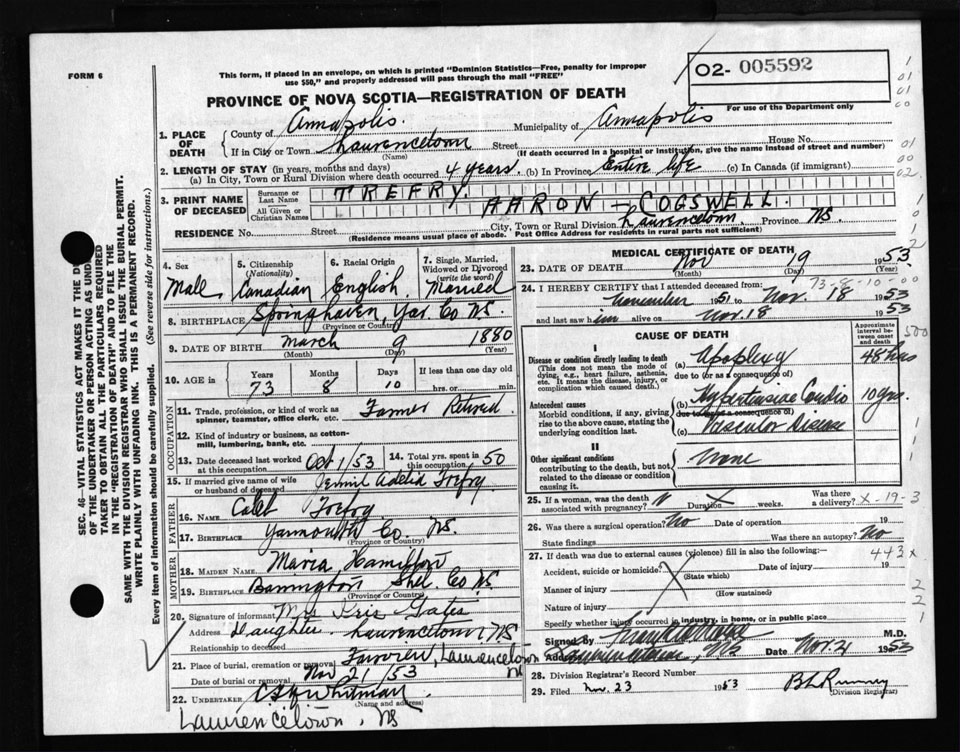 FORM 6
This form, if placed in an envelope, on which is printed "Dominion Statistics—Free, penalty for improper
use $50," and properly addressed will pass through the mail "FREE"
O2- 005592
For use of the Department only
PROVINCE OF NOVA SCOTIA—REGISTRATION OF DEATH
1. PLACE OF DEATH
County of Annapolis. Municipality of Annapolis
If in City or Town Laurencetown Street House No.
(Name) (If death occurred in a hospital or institution, give the name instead of street and number)
2. LENGTH OF STAY (in years, months and days)
(a) In City, Town or Rural Division where death occurred 4 years. (b) In Province Entire life (c) In Canada (if immigrant)
3. PRINT NAME OF DECEASED
Surname or Last Name TREFRY.
All Given or Christian Names AARON — COGSWELL.
RESIDENCE No. Street City, Town or Rural Division Laurencetown. Province NS
(Residence means usual place of abode. Post Office Address for residents in rural parts not sufficient)
4. Sex Male
5. Citizenship (Nationality) Canadian
6. Racial Origin English
7. Single, Married, Widowed or Divorced (write the word) Married
8. BIRTHPLACE Springhaven, Yar. Co NS.
(Province or Country)
9. DATE OF BIRTH March 9 1880
(Month) (Day) (Year)
10. AGE in Years Months Days If less than one day
73 8 10 hrs. or min.
OCCUPATION
11. Trade, profession, or kind of work as spinner, teamster, office clerk, etc. Farmer Retired
12. Kind of industry or business, as cotton-mill, lumbering, bank, etc.
13. Date deceased last worked at this occupation Oct 1/53
14. Total yrs. spent in this occupation 50
15. If married give name of wife or husband of deceased Adelia Trefry
FATHER
16. Name Caleb Trefry
17. Birthplace Yarmouth Co NS.
(Province or Country)
MOTHER
18. MAIDEN NAME Maria Hamilton
19. Birthplace Barrington Shel. Co NS.
(Province or Country)
20. Signature of informant Mrs Iris Gates
Address Laurencetown, NS
Relationship to deceased Daughter
21. Place of burial, cremation or removal Fairview, Laurencetown NS
Date of burial or removal Nov 21/53
22. UNDERTAKER Whitman
(Name and address)
Laurencetown, NS
MEDICAL CERTIFICATE OF DEATH
23. DATE OF DEATH Nov 19 1953.
(Month) (Day) (Year)
73-8-10-00
24. I HEREBY CERTIFY that I attended deceased from:
November 1951 to Nov. 18 1953
and last saw him alive on Nov. 18 1953
CAUSE OF DEATH
Approximate interval between onset and death
I
Disease or condition directly leading to death
(This does not mean the mode of dying, e.g., heart failure, asthenia, etc. It means the disease, injury, or complication which caused death.)
(a) Apoplexy 48 hrs
due to (or as a consequence of)
Antecedent causes
Morbid conditions, if any, giving rise to the above cause, stating the underlying condition last.
(b) Hypertensive Cardio 10 yrs.
due to (or as a consequence of)
(c) Vascular Disease
II
Other significant conditions
contributing to the death, but not related to the disease or condition causing it
None
25. If a woman, was the death associated with pregnancy? Duration weeks. Was there a delivery? X-19-3
26. Was there a surgical operation? No Date of operation 19
State findings Was there an autopsy? No
27. If death was due to external causes (violence) fill in also the following:—
443x
Accident, suicide or homicide? Date of injury 19
(State which)
Manner of injury
Nature of injury
Specify whether injury occurred in industry, in home, or in public place
Signed by M.D.
Address Laurencetown, NS Date Nov. 21 1953
28. Division Registrar's Record Number
29. Filed Nov. 23 1953
(Division Registrar)
SEC. 46—VITAL STATISTICS ACT MAKES IT THE DUTY
OF THE UNDERTAKER OR PERSON ACTING AS UNDERTAKER
TO OBTAIN ALL THE PARTICULARS REQUIRED
IN THE "REGISTRATION OF DEATH" AND TO FILE THE
SAME WITH THE DIVISION REGISTRAR WHO SHALL ISSUE THE BURIAL PERMIT.
WRITE PLAINLY WITH UNFADING INK. THIS IS A PERMANENT RECORD.
Every item of information should be carefully supplied. (See reverse side for instructions.)